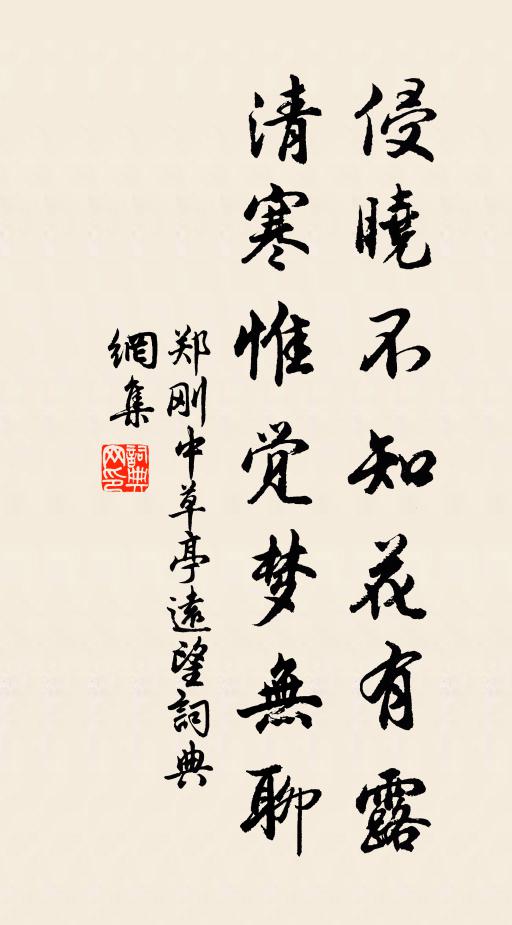 侵曉不知花有露
清寒惟觉梦無聊
郑刚中草亭遠望詞典
網集
詞典网印